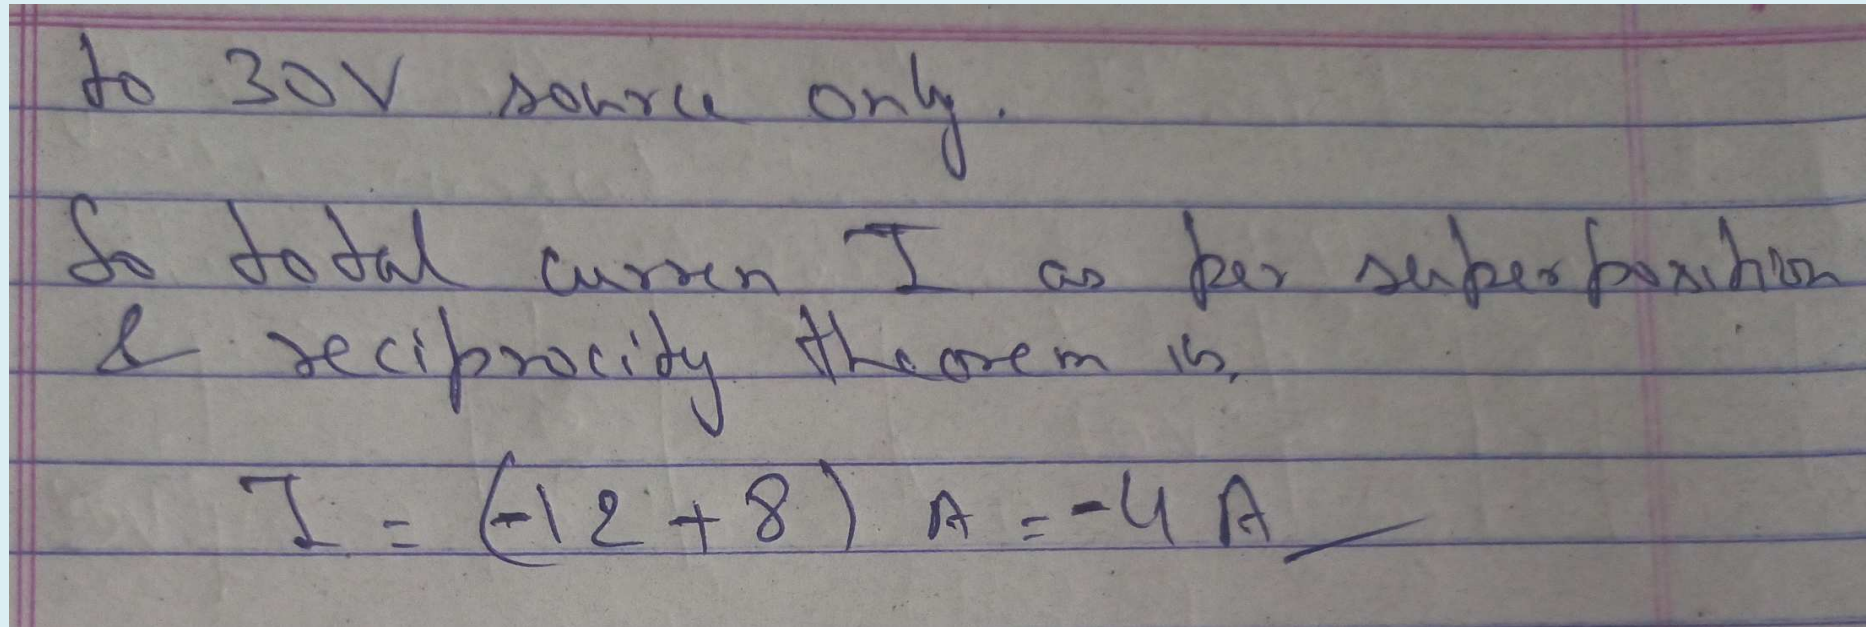 to 30V source only.
So total curren I as per superposition
& reciprocity theorem is,
I = (-12 + 8) A = -4 A